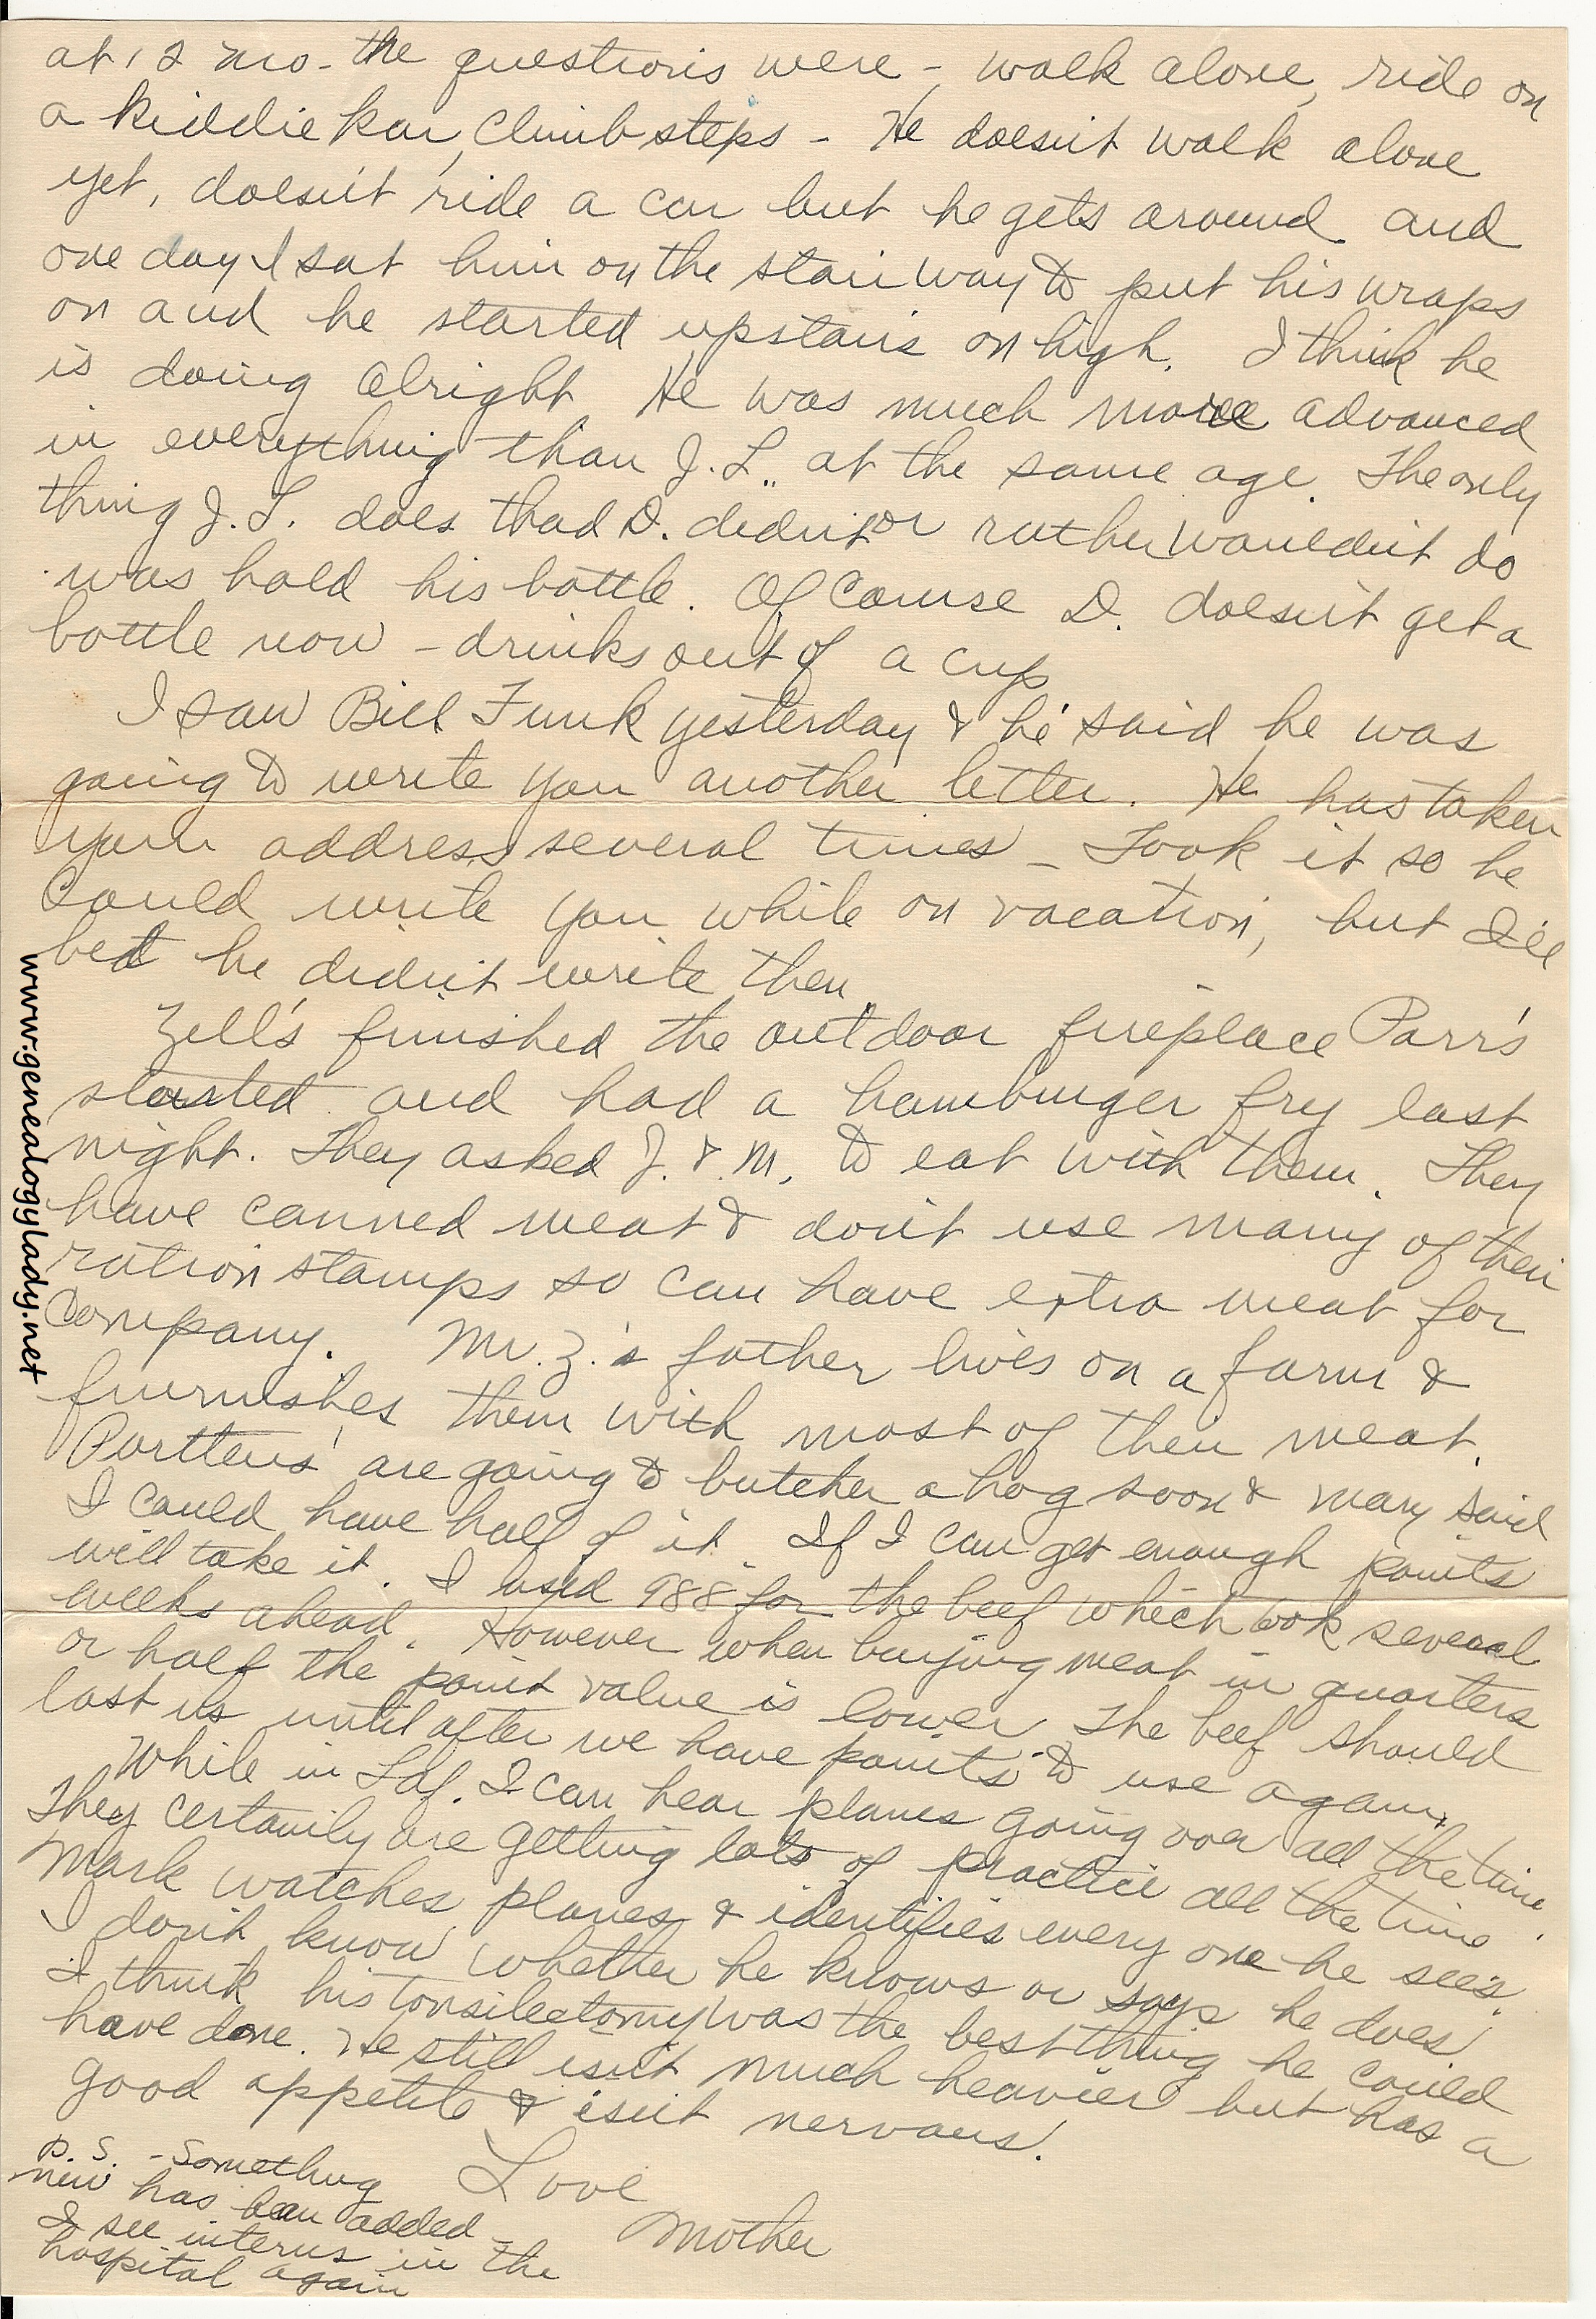 at 12 mo - the questions were - walk alone, ride on
a kiddie kar, climb steps - He doesn't walk alone
yet, doesn't ride a car but he gets around and
one day I sat him on the stairway to put his wraps
on and he started upstairs on high. I think he
is doing alright He was much more advanced
in everything than J. L. at the same age. The only
thing J. L. does that D. didn't or rather wouldn't do
was hold his bottle. Of course D. doesn't get a
bottle now - drinks out of a cup
I saw Bill Funk yesterday & he said he was
going to write you another letter. He has taken
your address several times - Took it so he
could write you while on vacation, but I'll
bet he didn't write then.
Zell's finished the outdoor fireplace Parr's
started and had a hamburger fry last
night. They asked J. & M. to eat with them. They
have canned meat & don't use many of their
ration stamps so can have extra meat for
company. Mr. Z.'s father lives on a farm &
furnishes them with most of their meat.
Portteus' are going to butcher a hog soon & Mary said
I could have half of it. If I can get enough points
will take it. I used 988 for the beef which took several
weeks ahead. However when buying meat in quarters
or half the point value is lower. The beef should
last us until after we have points to use again.
While in Laf. I can hear planes going over all the time.
They certainly are getting lots of practice all the time.
Mark watches planes & identifies every one he sees.
I don't know whether he knows or says he does.
I think his tonsilectomy was the best thing he could
have done. He still isn't much heavier but has a
good appetite & isn't nervous.
Love
Mother
P. S. - Something
new has been added -
I see interns in the
hospital again
www.genealogylady.net